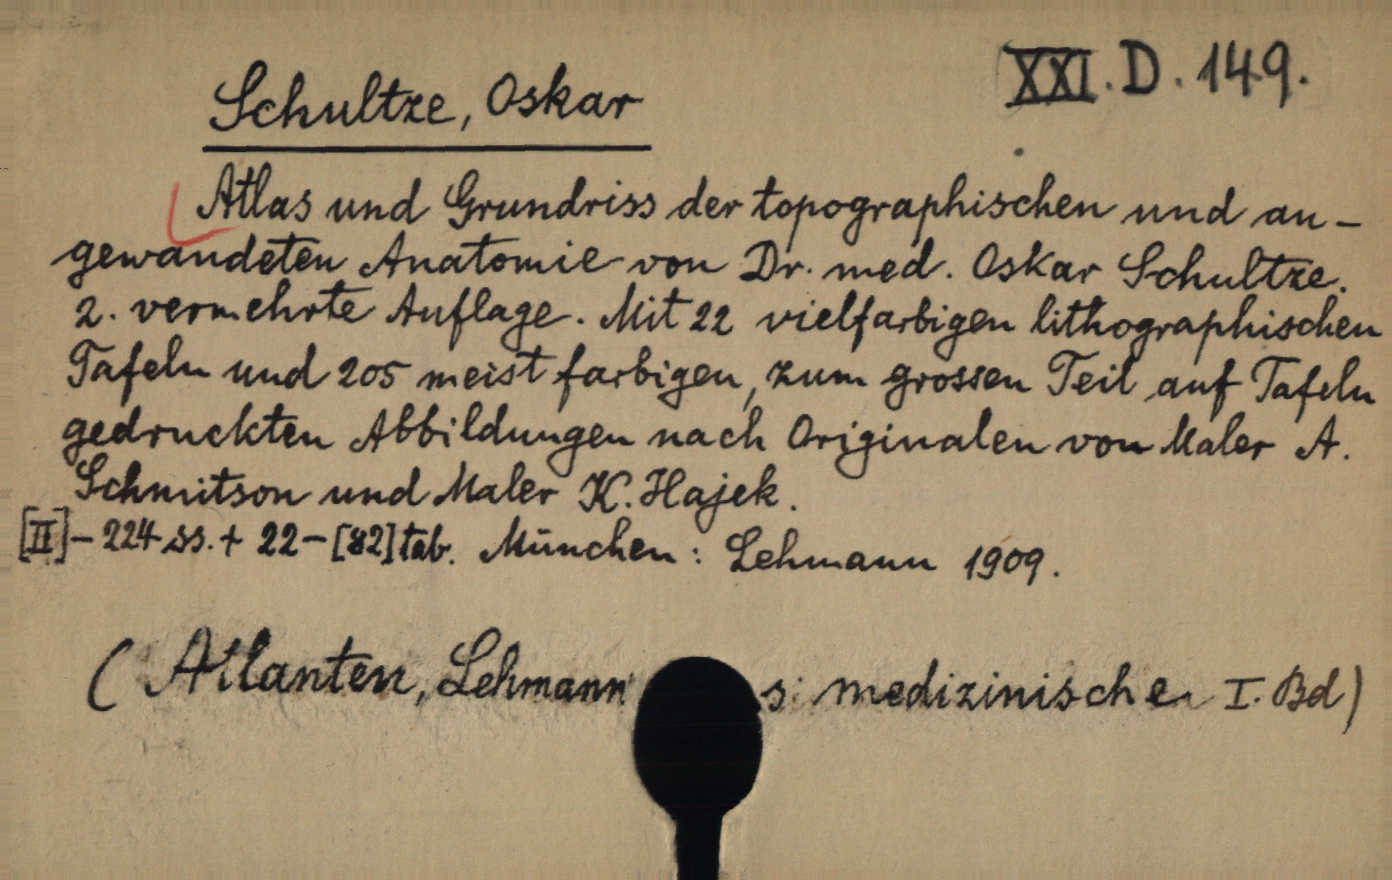 XXI. D. 149.
Schultze, Oskar
Atlas und Grundriss der topographischen und an-
gewandeten Anatomie von Dr. med. Oskar Schultze.
2. vermehrte Auflage. Mit 22 vielfarbigen lithographischen
Tafeln und 205 meist farbigen, zum grossen Teil auf Tafeln
gedruckten Abbildungen nach Originalen von Maler A.
Schmitson und Maler K. Hajek.
[II] - 224 ss. + 22 - [82] tab. München: Lehmann 1909.
(Atlanten, Lehmann s: medizinische I. Bd)